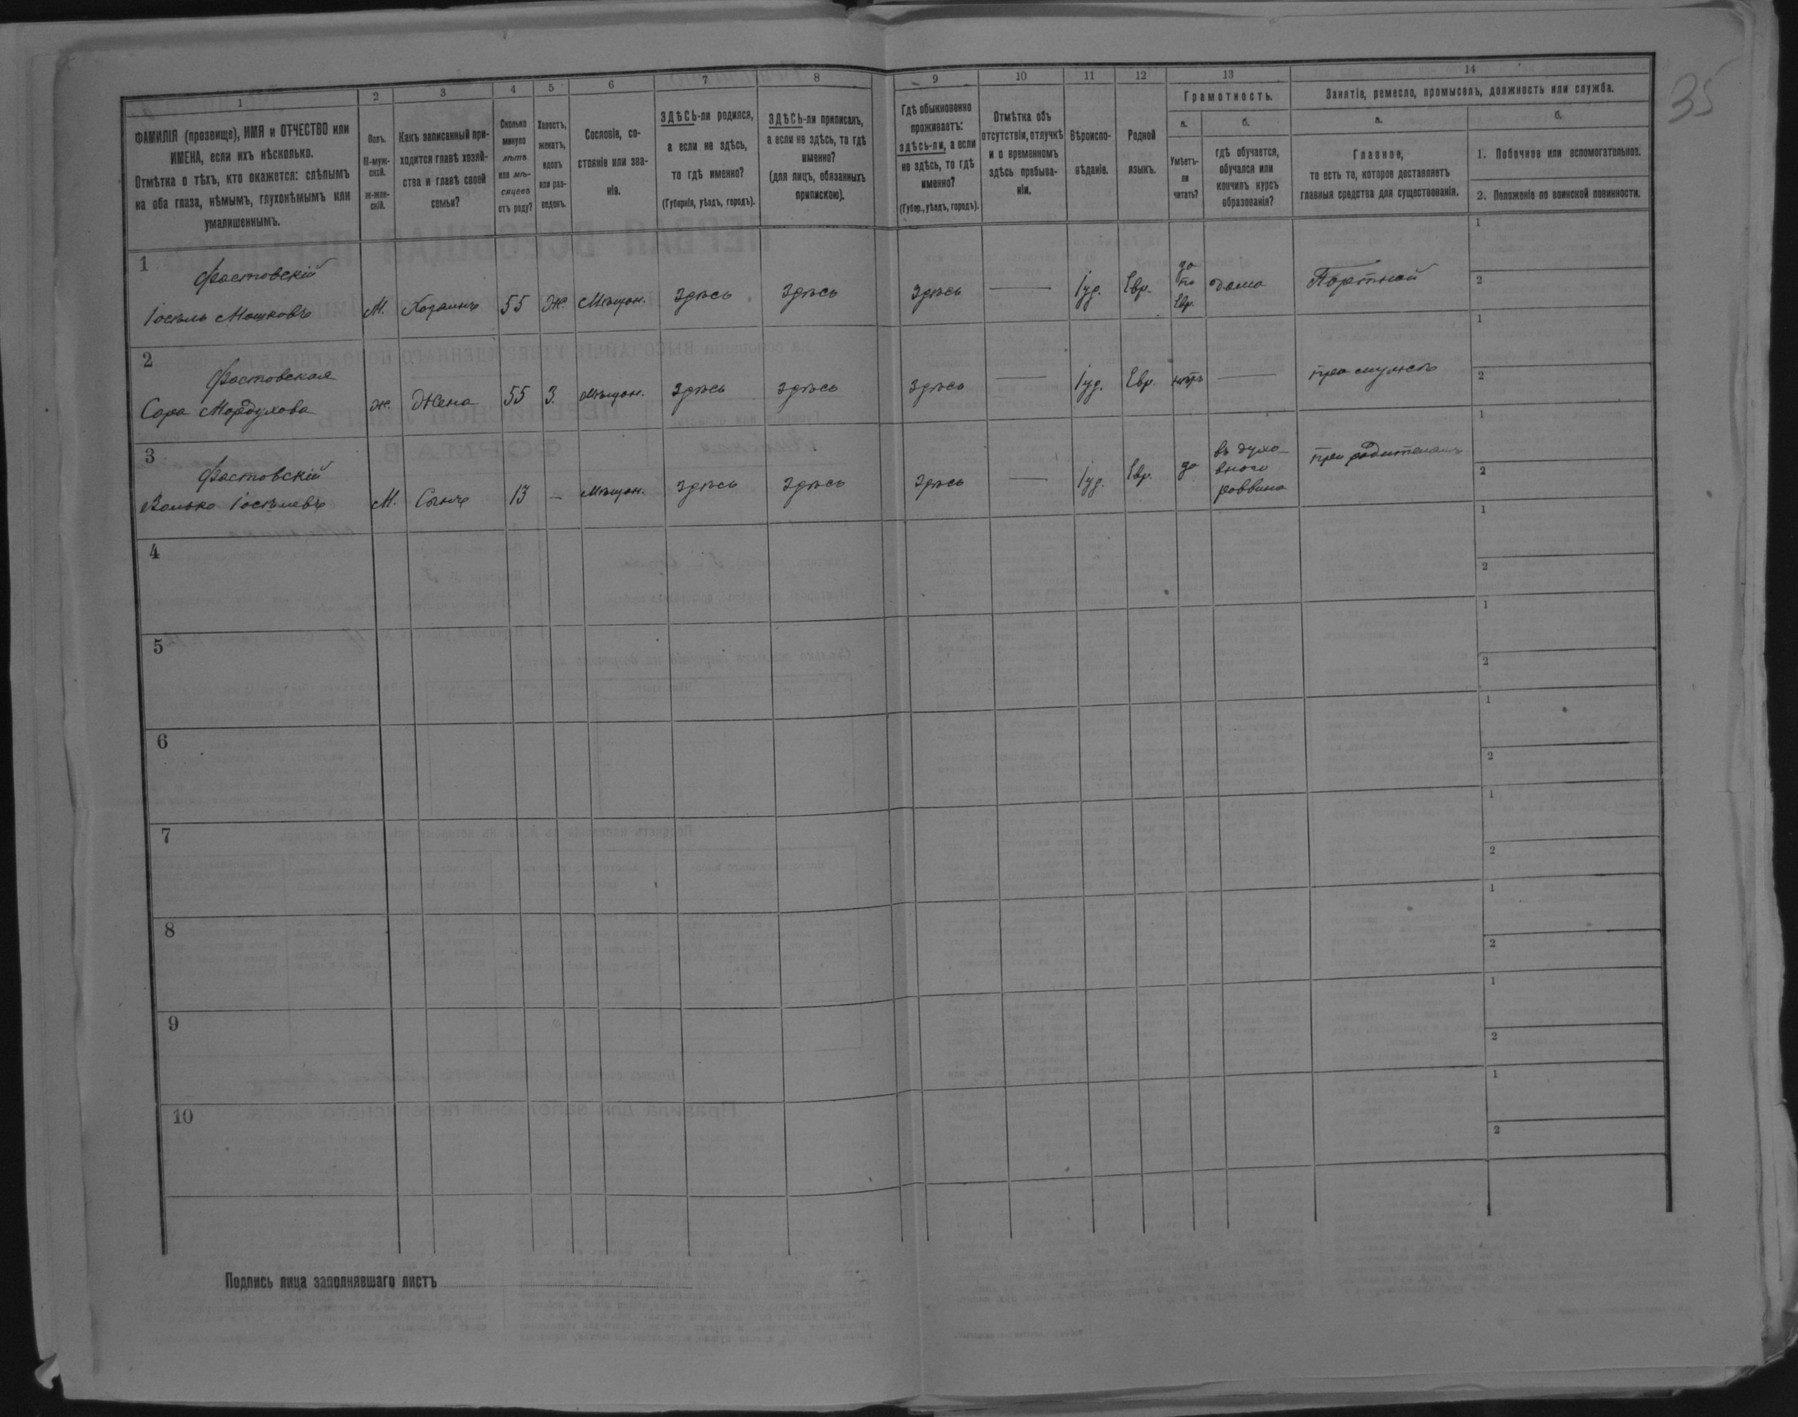 35
1
2
3
4
5
6
7
8
9
10
11
12
13
14
ФАМИЛІЯ (прозвище), ИМЯ и ОТЧЕСТВО или
ИМЕНА, если ихъ нѣсколько.
Отмѣтка о тѣхъ, кто окажется: слѣпымъ
на оба глаза, нѣмымъ, глухонѣмымъ или
умалишеннымъ.
Полъ.
М-муж-
ской.
Ж-жен-
скій.
Какъ записанный при-
ходится главѣ хозяй-
ства и главѣ своей
семьи?
Сколько
минуло
лѣтъ
или мѣ-
сяцевъ
отъ роду?
Холостъ,
женатъ,
вдовъ
или раз-
веденъ.
Сословіе, со-
стояніе или зва-
ніе.
ЗДѢСЬ-ли родился,
а если не здѣсь,
то гдѣ именно?
(Губернія, уѣздъ, городъ).
ЗДѢСЬ-ли приписанъ,
а если не здѣсь, то гдѣ
именно?
(для лицъ, обязанныхъ
припискою).
Гдѣ обыкновенно
проживаетъ:
здѣсь-ли, а если
не здѣсь, то гдѣ
именно?
(Губер., уѣздъ, городъ).
Отмѣтка объ
отсутствіи, отлучкѣ
и о временномъ
здѣсь пребыва-
ніи.
Вѣроиспо-
вѣданіе.
Родной
языкъ.
Грамотность.
а.
Умѣетъ-
ли
читать?
б.
гдѣ обучается,
обучался или
кончилъ курсъ
образованія?
Занятія, ремесло, промыселъ, должность или служба.
а.
Главное,
то есть то, которое доставляетъ
главныя средства для существованія.
б.
1. Побочное или вспомогательное.
2. Положеніе по воинской повинности.
1
Фастовскій
Іосель Мошковъ
М.
Хозяинъ
55
Ж.
Мѣщан.
Здѣсь
Здѣсь
Здѣсь
Іуд.
Евр.
да
по
Евр.
дома
Портной
1
2
2
Фастовская
Сара Мордухова
ж.
Жена
55
З.
Мѣщан.
Здѣсь
Здѣсь
Здѣсь
Іуд.
Евр.
нѣтъ
при мужѣ
1
2
3
Фастовскій
Волько Іоселевъ
М.
Сынъ
13
Мѣщан.
Здѣсь
Здѣсь
Здѣсь
Іуд.
Евр.
да
въ духо-
вного
раввина
при родителяхъ
1
2
4
1
2
5
1
2
6
1
2
7
1
2
8
1
2
9
1
2
10
1
2
Подпись лица заполнявшаго листъ